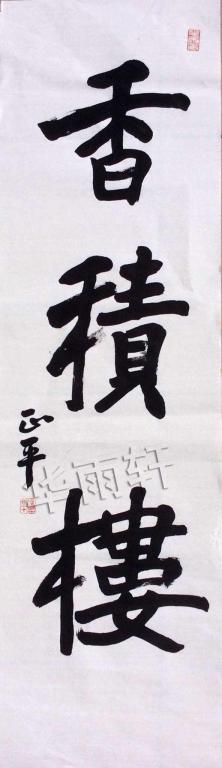 香積樓
正平
华雨轩